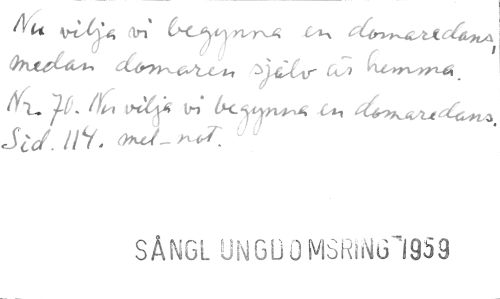 Nu vilja vi begynna en domaredans,
medan domaren själv är hemma.
Nr. 70. Nu vilja vi begynna en domaredans.
Sid. 114. mel-not.
SÅNGL UNGDOMSRING 1959